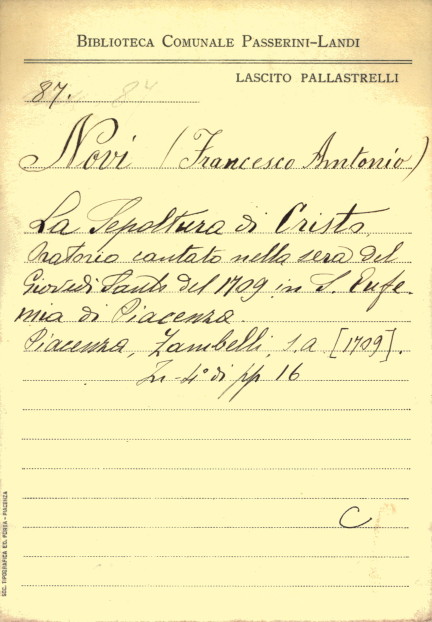 BIBLIOTECA COMUNALE PASSERINI-LANDI
LASCITO PALLASTRELLI
87. 87
Novi (Francesco Antonio)
La Sepoltura di Cristo
Oratorio cantato nella sera del
Giovedi Santo del 1709 in S. Eufe-
mia di Piacenza.
Piacenza, Zambelli, s.a. [1709].
In-4° di pp 16
C
SOC. TIPOGRAFICA ED. PORTA - PIACENZA